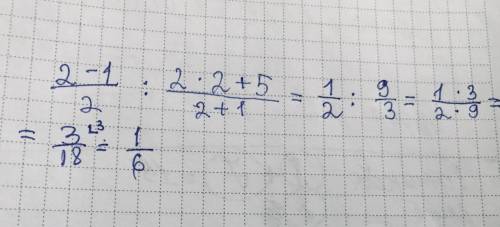 (2-1)/2 : (2·2+5)/(2+1) = 1/2 : 9/3 = (1·3)/(2·9) =
= 3/18 ⁽³ = 1/6